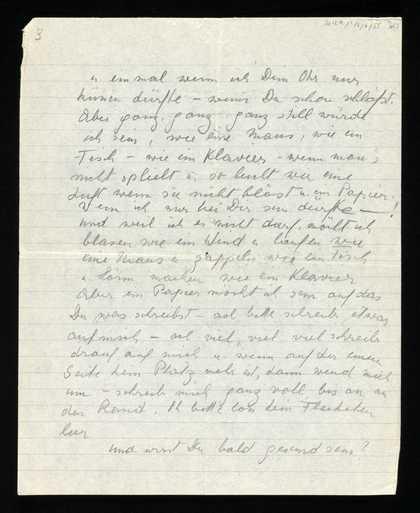 3
u einmal wenn ich Dein Ohr nur
küssen dürfte – wenn Du schon schläfst.
Aber ganz, ganz, ganz still würde
ich sein, wie eine Maus, wie ein
Tisch – wie ein Klavier – wenn man's
nicht spielt u. so leicht wie eine
Luft wenn sie nicht bläst u. ein Papier!
Wenn ich nur bei Dir sein dürfte –!
Und weil ich es nicht darf, möcht ich
blasen wie ein Wind u. laufen wie
eine Maus u. zappeln wie ein Tisch
u. Lärm machen wie ein Klavier
Aber ein Papier möcht ich sein auf das
Du was schreibst – ach bitte schreib etwas
auf mich – ach viel, viel viel schreib
drauf auf mich u. wenn auf der einen
Seite kein Platz mehr ist, dann wend mich
um – schreib mich ganz voll bis an an
den Rand. Ach bitte lass kein Fleckchen
leer
Und wirst Du bald gesund sein?